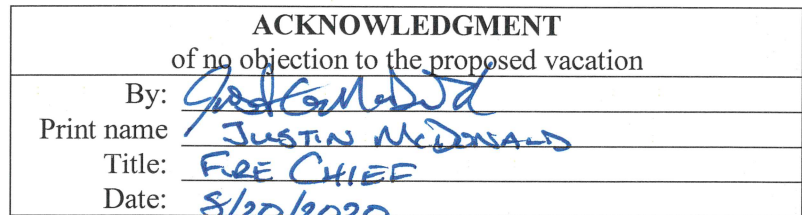 ACKNOWLEDGMENT
of no objection to the proposed vacation
By:
Print name JUSTIN McDONALD
Title: FIRE CHIEF
Date: 8/20/2020